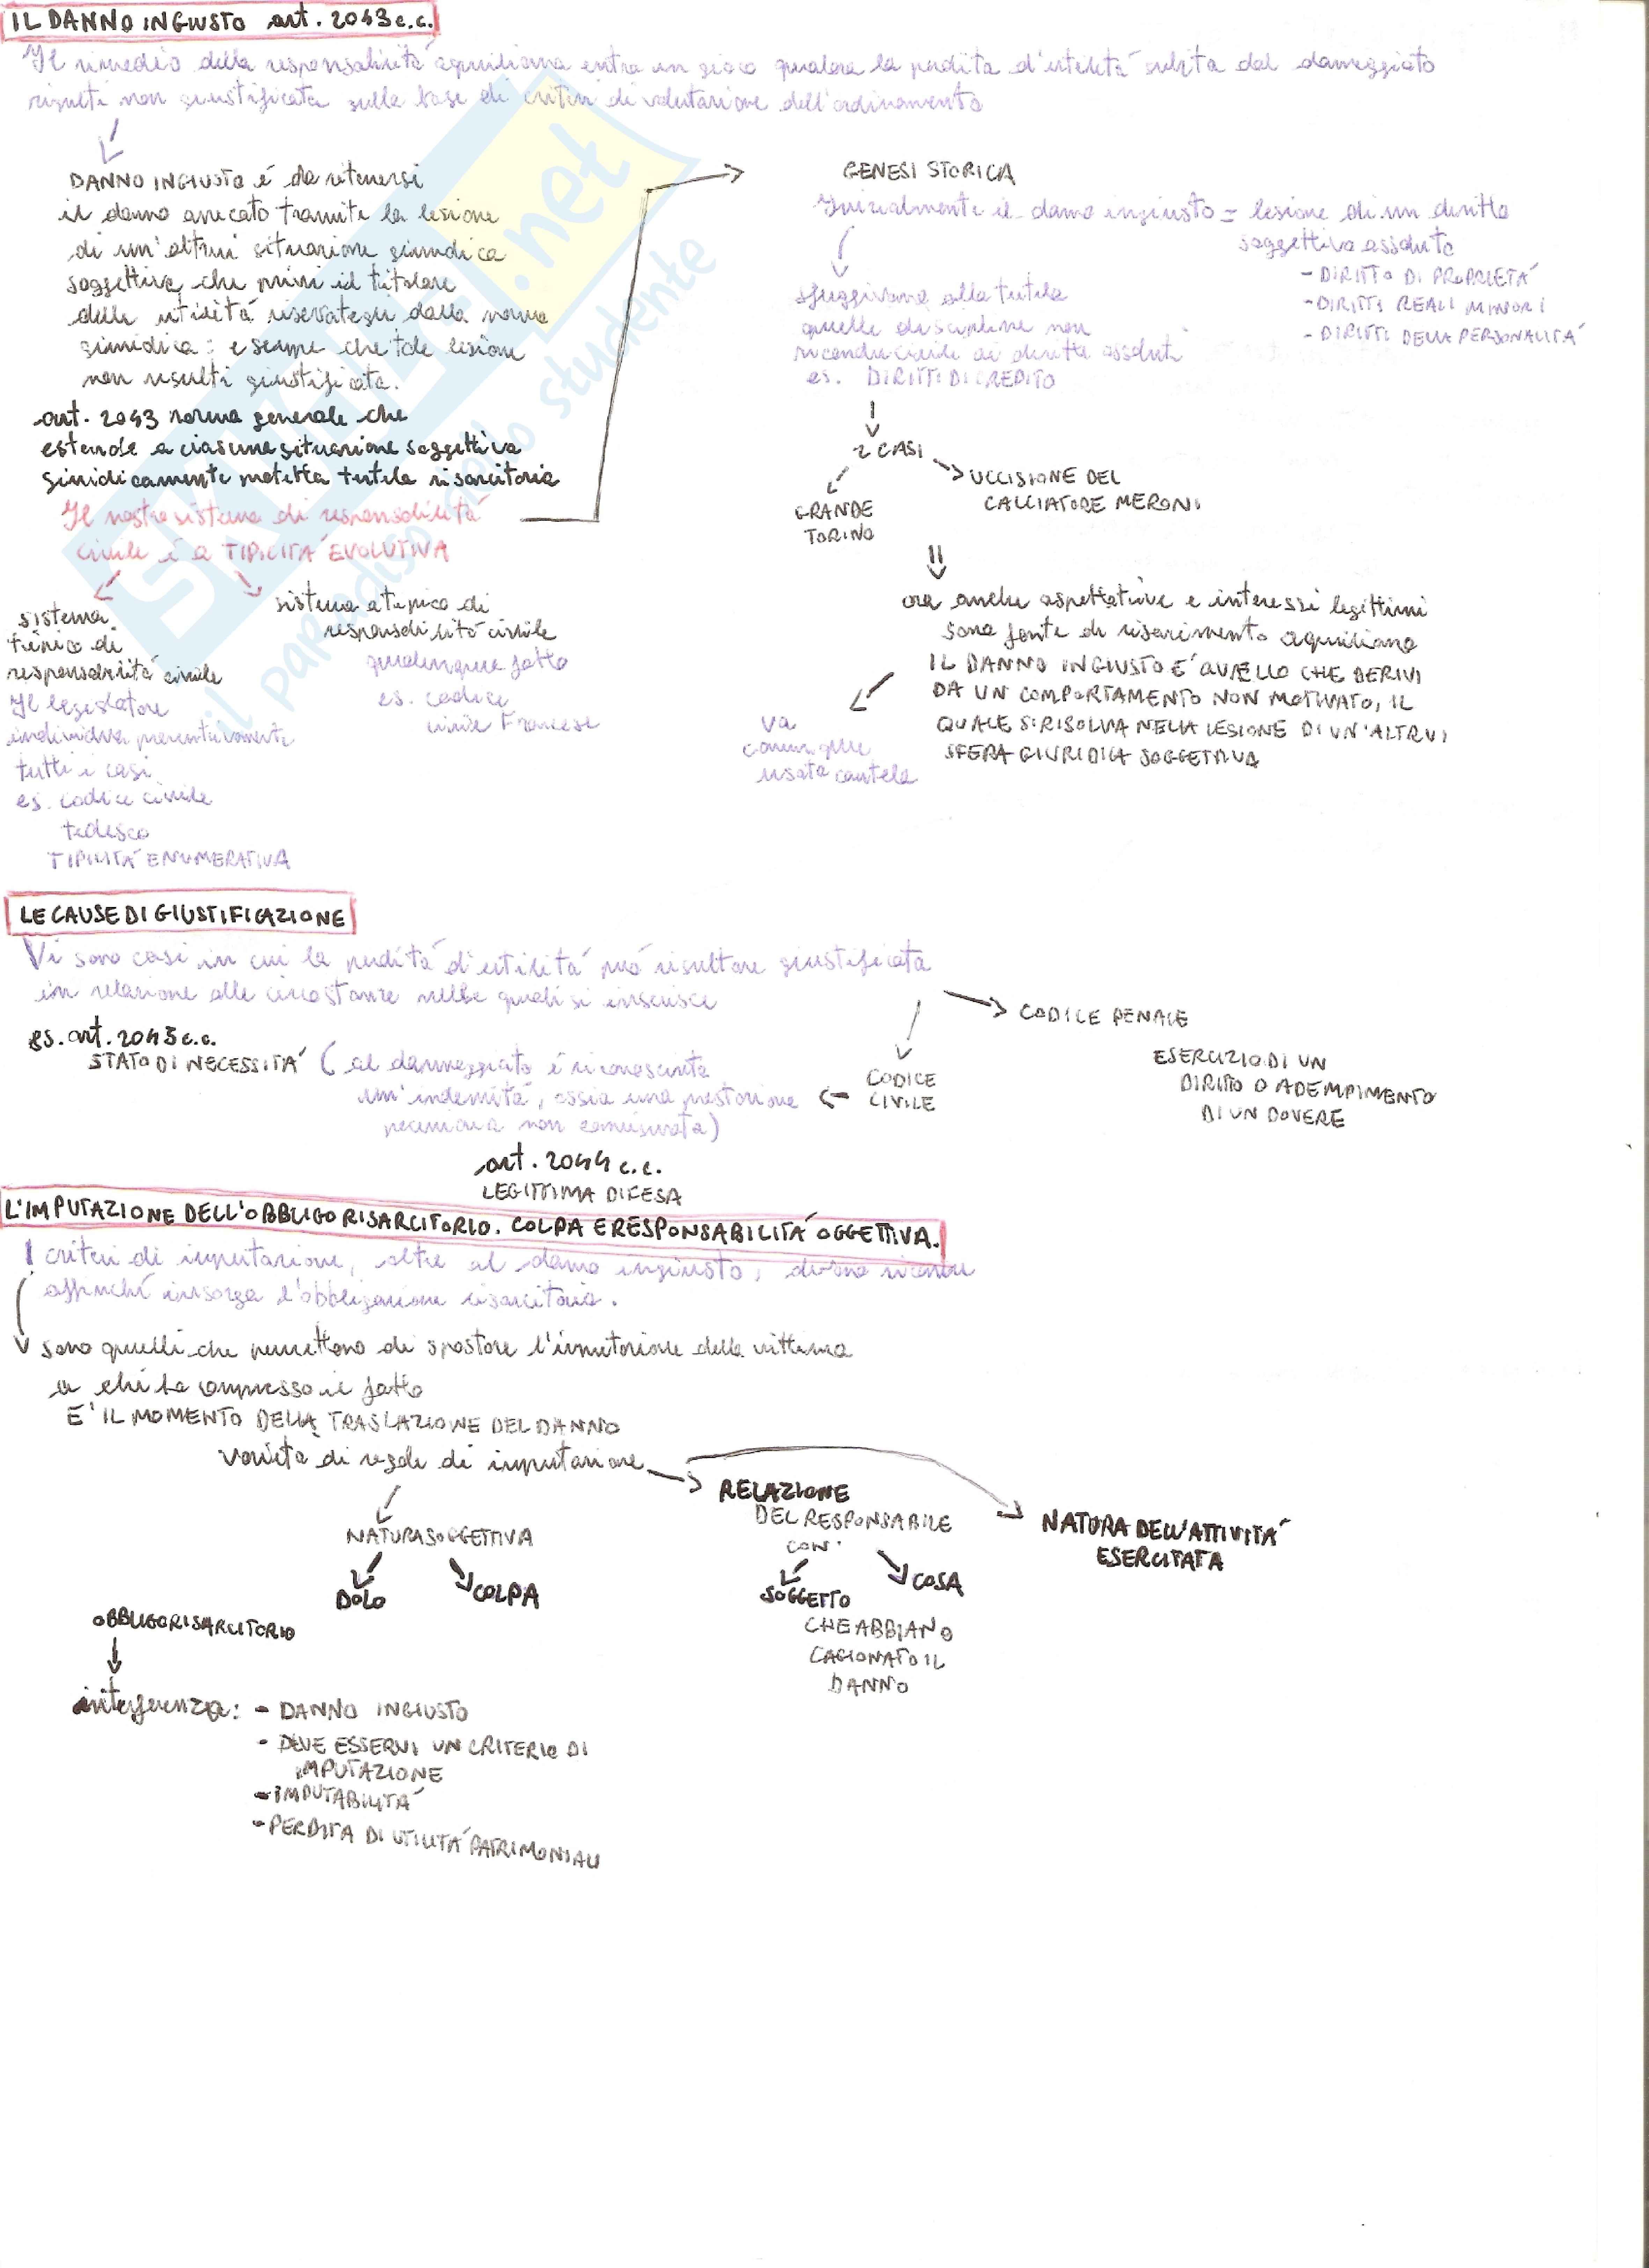 IL DANNO INGIUSTO art. 2043 c.c.
Il rimedio della responsabilità aquiliana entra in gioco qualora la perdita d'utilità subita dal danneggiato
risulti non giustificata sulla base di criteri di valutazione dell'ordinamento
DANNO INGIUSTO é da ritenersi
il danno arrecato tramite la lesione
di un'altrui situazione giuridica
soggettiva, che privi il titolare
delle utilità riservategli dalla norma
giuridica; e sempre che tale lesione
non risulti giustificata.
art. 2043 norma generale che
estende a ciascuna situazione soggettiva
giuridicamente protetta tutela risarcitoria
Il nostro sistema di responsabilità
civile é a TIPICITÀ EVOLUTIVA
sistema
tipico di
responsabilità civile
Il legislatore
individua preventivamente
tutti i casi
es. codice civile
tedesco
TIPICITÀ ENUMERATIVA
sistema atipico di
responsabilità civile
qualunque fatto
es. codice
civile Francese
GENESI STORICA
Inizialmente il danno ingiusto = lesione di un diritto
soggettivo assoluto
- DIRITTO DI PROPRIETÁ
- DIRITTI REALI MINORI
- DIRITTI DELLA PERSONALITÁ
sfuggivano alla tutela
quelle discipline non
riconducibili ai diritti assoluti
es. DIRITTI DI CREDITO
2 CASI
GRANDE
TORINO
UCCISIONE DEL
CALCIATORE MERONI
ora anche aspettative e interessi legittimi
sono fonte di risarcimento aquiliano
IL DANNO INGIUSTO E' QUELLO CHE DERIVI
DA UN COMPORTAMENTO NON MOTIVATO, IL
QUALE SI RISOLVA NELLA LESIONE DI UN'ALTRUI
SFERA GIURIDICA SOGGETTIVA
va
comunque
usata cautela
LE CAUSE DI GIUSTIFICAZIONE
Vi sono casi in cui la perdita d'utilità può risultare giustificata
in relazione alle circostanze nelle quali si inserisce
es. art. 2045 c.c.
STATO DI NECESSITÁ (al danneggiato é riconosciuta
un'indennità, ossia una prestazione
pecuniaria non commisurata)
CODICE
CIVILE
CODICE PENALE
ESERCIZIO DI UN
DIRITTO O ADEMPIMENTO
DI UN DOVERE
art. 2044 c.c.
LEGITTIMA DIFESA
L'IMPUTAZIONE DELL'OBBLIGO RISARCITORIO. COLPA E RESPONSABILITÁ OGGETTIVA.
I criteri di imputazione, oltre al danno ingiusto, devono ricorrere
affinché insorga l'obbligazione risarcitoria.
sono quelli che permettono di spostare l'imputazione dalla vittima
a chi ha commesso il fatto
E' IL MOMENTO DELLA TRASLAZIONE DEL DANNO
varietà di regole di imputazione
NATURA SOGGETTIVA
DOLO
COLPA
RELAZIONE
DEL RESPONSABILE
CON:
SOGGETTO
COSA
CHE ABBIANO
CAGIONATO IL
DANNO
NATURA DELL'ATTIVITÁ
ESERCITATA
OBBLIGO RISARCITORIO
interferenza: - DANNO INGIUSTO
- DEVE ESSERVI UN CRITERIO DI
IMPUTAZIONE
- IMPUTABILITÁ
- PERDITA DI UTILITÁ PATRIMONIALI
SKUOLA.net
il paradiso dello studente